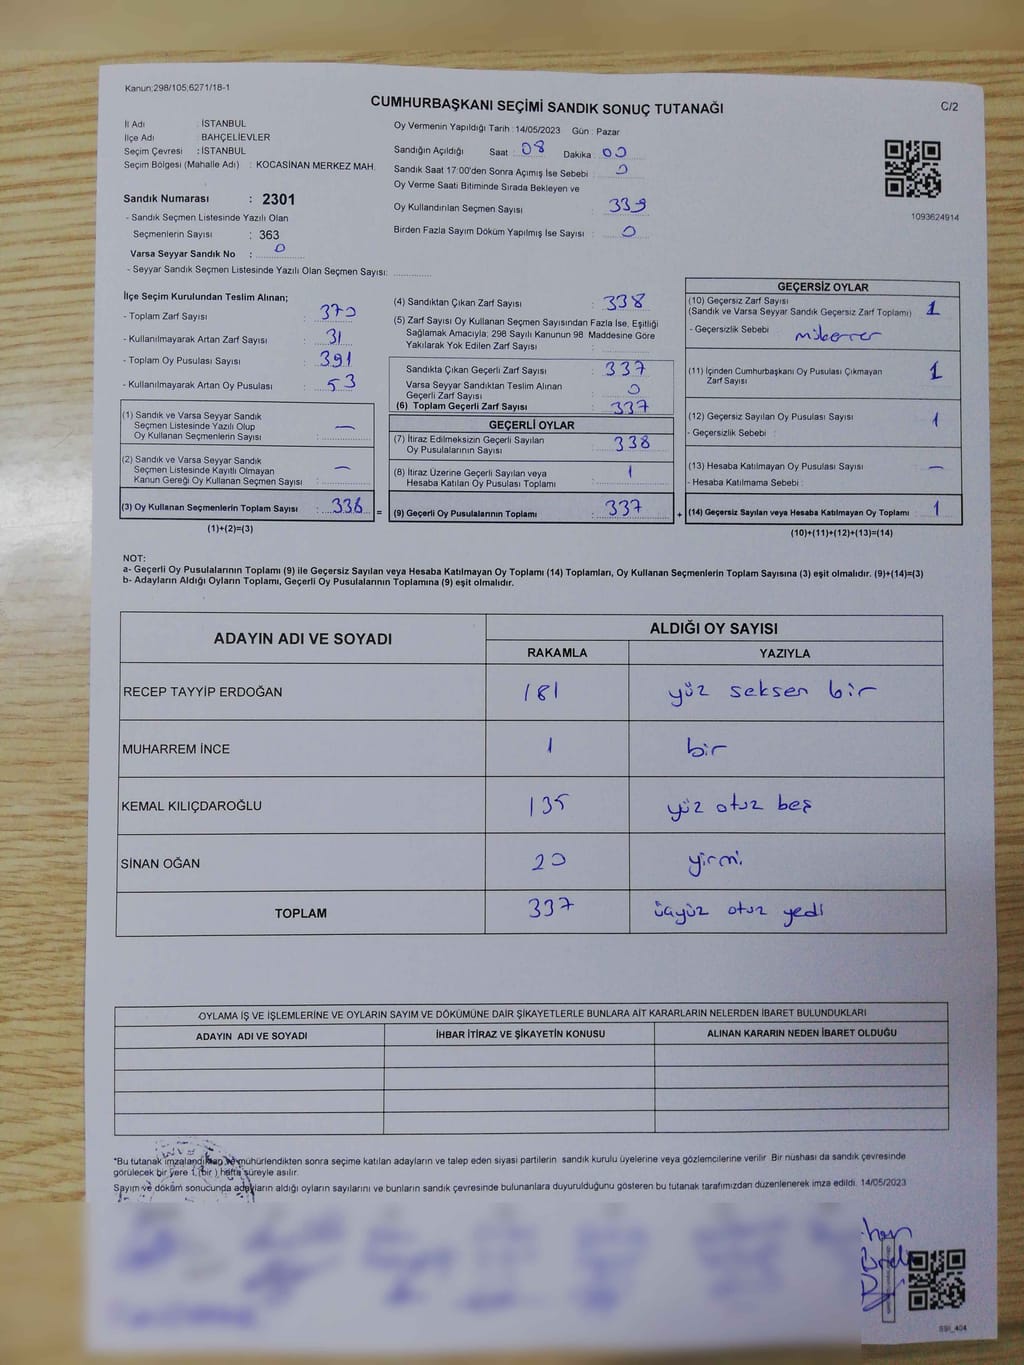 Kanun:298/105;6271/18-1
CUMHURBAŞKANI SEÇİMİ SANDIK SONUÇ TUTANAĞI
C/2
İl Adı : İSTANBUL
İlçe Adı : BAHÇELİEVLER
Seçim Çevresi : İSTANBUL
Seçim Bölgesi (Mahalle Adı) : KOCASİNAN MERKEZ MAH.
Sandık Numarası : 2301
- Sandık Seçmen Listesinde Yazılı Olan
Seçmenlerin Sayısı : 363
Varsa Seyyar Sandık No : 0
- Seyyar Sandık Seçmen Listesinde Yazılı Olan Seçmen Sayısı:
Oy Vermenin Yapıldığı Tarih : 14/05/2023 Gün : Pazar
Sandığın Açıldığı Saat : 08 Dakika : 00
Sandık Saat 17:00'den Sonra Açımış İse Sebebi : 0
Oy Verme Saati Bitiminde Sırada Bekleyen ve
Oy Kullandırılan Seçmen Sayısı : 339
Birden Fazla Sayım Döküm Yapılmış İse Sayısı : 0
1093624914
İlçe Seçim Kurulundan Teslim Alınan;
- Toplam Zarf Sayısı : 370
- Kullanılmayarak Artan Zarf Sayısı : 31
- Toplam Oy Pusulası Sayısı : 391
- Kullanılmayarak Artan Oy Pusulası : 53
(1) Sandık ve Varsa Seyyar Sandık
Seçmen Listesinde Yazılı Olup
Oy Kullanan Seçmenlerin Sayısı : —
(2) Sandık ve Varsa Seyyar Sandık
Seçmen Listesinde Kayıtlı Olmayan
Kanun Gereği Oy Kullanan Seçmen Sayısı : —
(3) Oy Kullanan Seçmenlerin Toplam Sayısı : 338 =
(1)+(2)=(3)
(4) Sandıktan Çıkan Zarf Sayısı : 338
(5) Zarf Sayısı Oy Kullanan Seçmen Sayısından Fazla İse, Eşitliği
Sağlamak Amacıyla; 298 Sayılı Kanunun 98. Maddesine Göre
Yakılarak Yok Edilen Zarf Sayısı :
Sandıkta Çıkan Geçerli Zarf Sayısı : 337
Varsa Seyyar Sandıktan Teslim Alınan
Geçerli Zarf Sayısı : 0
(6) Toplam Geçerli Zarf Sayısı : 337
GEÇERLİ OYLAR
(7) İtiraz Edilmeksizin Geçerli Sayılan
Oy Pusulalarının Sayısı : 338
(8) İtiraz Üzerine Geçerli Sayılan veya
Hesaba Katılan Oy Pusulası Toplamı : 1
(9) Geçerli Oy Pusulalarının Toplamı : 337 +
GEÇERSİZ OYLAR
(10) Geçersiz Zarf Sayısı
(Sandık ve Varsa Seyyar Sandık Geçersiz Zarf Toplamı) : 1
- Geçersizlik Sebebi :
(11) İçinden Cumhurbaşkanı Oy Pusulası Çıkmayan
Zarf Sayısı : 1
(12) Geçersiz Sayılan Oy Pusulası Sayısı : 1
- Geçersizlik Sebebi :
(13) Hesaba Katılmayan Oy Pusulası Sayısı : —
- Hesaba Katılmama Sebebi :
(14) Geçersiz Sayılan veya Hesaba Katılmayan Oy Toplamı : 1
(10)+(11)+(12)+(13)=(14)
NOT:
a- Geçerli Oy Pusulalarının Toplamı (9) ile Geçersiz Sayılan veya Hesaba Katılmayan Oy Toplamı (14) Toplamları, Oy Kullanan Seçmenlerin Toplam Sayısına (3) eşit olmalıdır. (9)+(14)=(3)
b- Adayların Aldığı Oyların Toplamı, Geçerli Oy Pusulalarının Toplamına (9) eşit olmalıdır.
ADAYIN ADI VE SOYADI ALDIĞI OY SAYISI
RAKAMLA YAZIYLA
RECEP TAYYİP ERDOĞAN 181 yüz seksen bir
MUHARREM İNCE 1 bir
KEMAL KILIÇDAROĞLU 135 yüz otuz beş
SİNAN OĞAN 20 yirmi
TOPLAM 337 üçyüz otuz yedi
OYLAMA İŞ VE İŞLEMLERİNE VE OYLARIN SAYIM VE DÖKÜMÜNE DAİR ŞİKAYETLERLE BUNLARA AİT KARARLARIN NELERDEN İBARET BULUNDUKLARI
ADAYIN ADI VE SOYADI İHBAR İTİRAZ VE ŞİKAYETİN KONUSU ALINAN KARARIN NEDEN İBARET OLDUĞU
*Bu tutanak imzalandıktan ve mühürlendikten sonra seçime katılan adayların ve talep eden siyasi partilerin sandık kurulu üyelerine veya gözlemcilerine verilir. Bir nüshası da sandık çevresinde
görülecek bir yere 1 (bir ) hafta süreyle asılır.
Sayım ve döküm sonucunda adayların aldığı oyların sayılarını ve bunların sandık çevresinde bulunanlara duyurulduğunu gösteren bu tutanak tarafımızdan düzenlenerek imza edildi. 14/05/2023
SSI_404